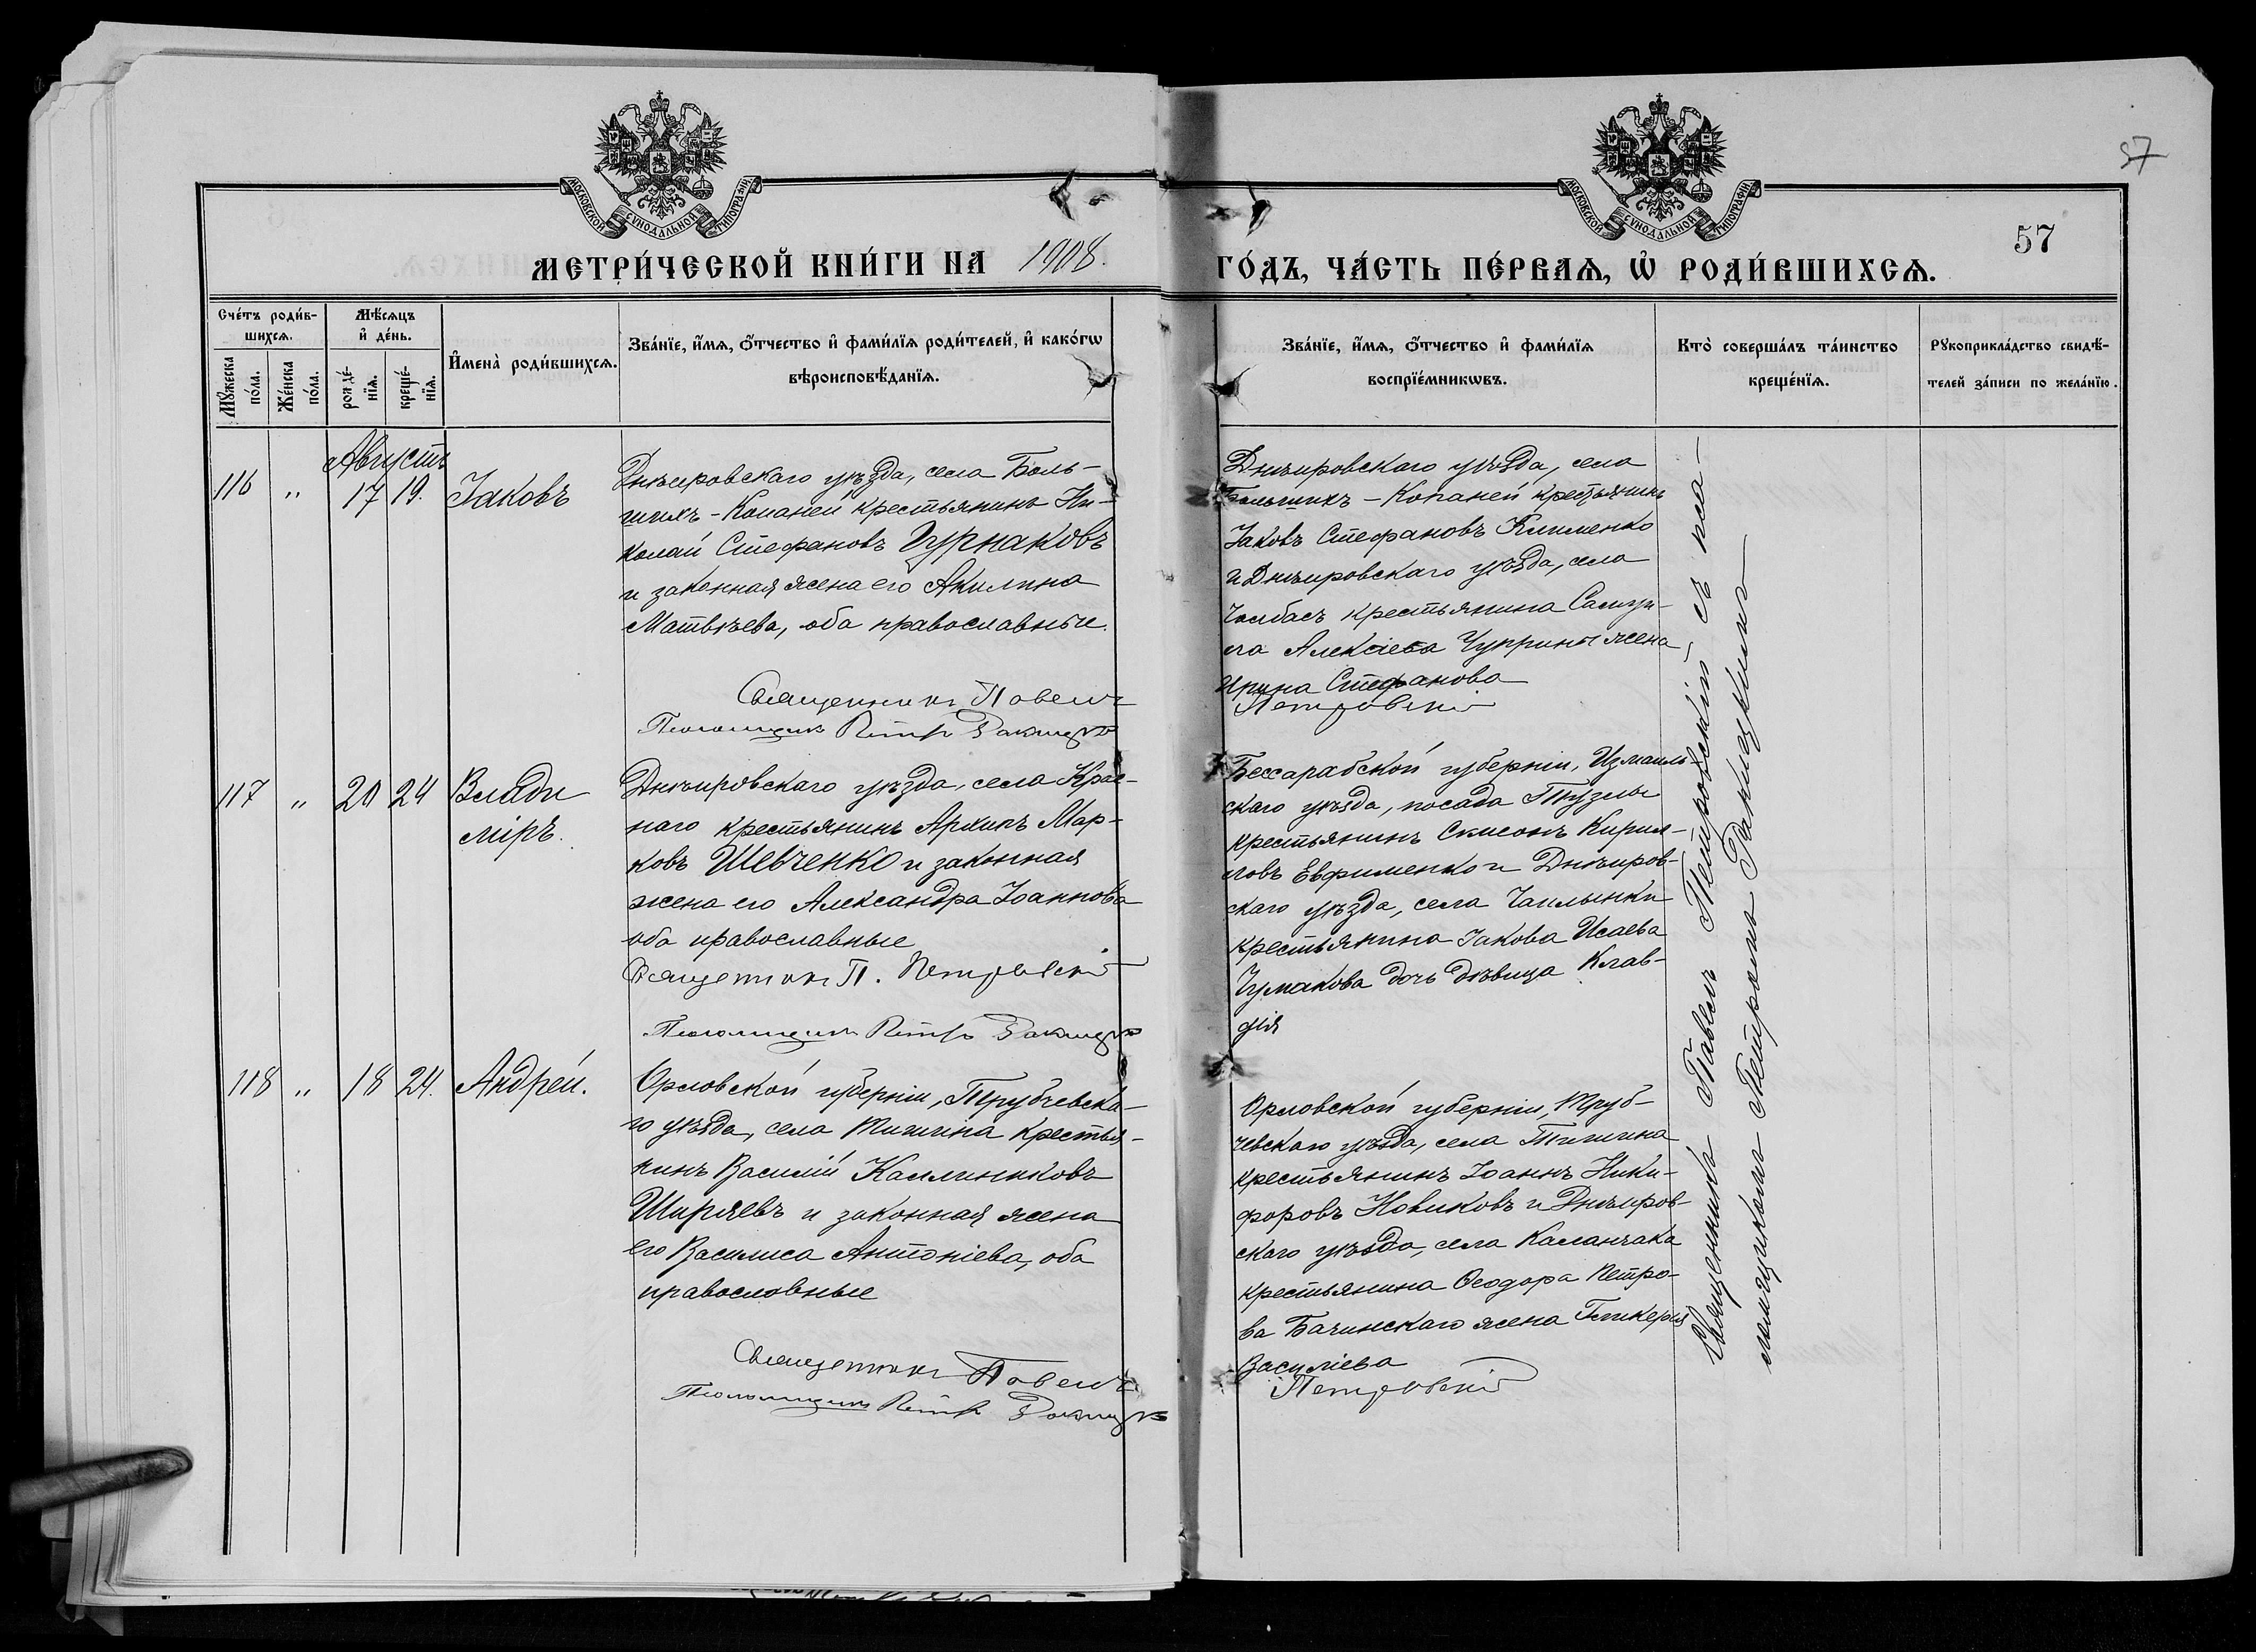 57
МОСКОВСКОЙ СѴНОДАЛЬНОЙ ТИПОГРАФІИ
МОСКОВСКОЙ СѴНОДАЛЬНОЙ ТИПОГРАФІИ
57
МЕТРИ́ЧЕСКОЙ КНИ́ГИ НА 1908.
ГО́ДЪ, ЧА́СТЬ ПЕ́РВАѦ, Ѡ҆ РОДИ́ВШИХСѦ.
Сче́тъ роди́в-
шихсѧ.
Мꙋ́жеска по́ла.
Же́нска по́ла.
Мѣ́сѧцъ
и҆ де́нь.
рожде́-
нїѧ.
креще́-
нїѧ.
И҆мена̀ роди́вшихсѧ.
Зва́нїе, и҆́мѧ, ѻ҆́тчество и҆ фами́лїѧ роди́телей, и҆ како́гѡ
вѣроисповѣ́данїѧ.
Зва́нїе, и҆́мѧ, ѻ҆́тчество и҆ фами́лїѧ
воспрїе́мникѡвъ.
Кто̀ соверша́лъ та́инство
креще́нїѧ.
Рꙋкоприкла́дство свидѣ́-
телей за́писи по жела́нїю.
Августъ
116 " 17 19. Іаковъ
Днѣпровскаго уѣзда, села Боль-
шихъ-Копаней крестьянинъ Ни-
колай Стефановъ Цурнаковъ
и законная жена его Акилина
Матвѣева, оба православные.
Священникъ Павелъ
Псаломщикъ Петръ
Днѣпровскаго уѣзда, села
Большихъ-Копаней крестьянинъ
Іаковъ Стефановъ Клименко
и Днѣпровскаго уѣзда, села
Чалбасъ крестьянина Самуи-
ла Алексіева Чуприны жена
Ирина Стефанова
Петровскій
117 " 20 24 Влади
міръ.
Днѣпровскаго уѣзда, села Крас-
наго крестьянинъ Архипъ Мар-
ковъ Шевченко и законная
жена его Александра Іоаннова
оба православные
Священникъ П. Петровскій
Псаломщикъ Петръ
Бессарабской губерніи, Измаиль-
скаго уѣзда, посада Тузлы
крестьянинъ Симеонъ Кирил-
ловъ Евфименко и Днѣпров-
скаго уѣзда, села Чаплынки
крестьянина Іакова Исаева
Чумакова дочь дѣвица Клав-
дія
118 " 18 24. Андрей.
Орловской губерніи, Трубчевска-
го уѣзда, села Тишина крестья-
нинъ Василій Каллиниковъ
Ширяевъ и законная жена
его Василиса Антоніева, оба
православные
Священникъ Павелъ
Псаломщикъ Петръ
Орловской губерніи, Труб-
чевскаго уѣзда, села Тишина
крестьянинъ Іоаннъ Ники-
форовъ Новиковъ и Днѣпров-
скаго уѣзда, села Каланчака
крестьянина Ѳеодора Петро-
ва Бачинскаго жена Гликерія
Василіева
Петровскій
Священникъ Павелъ Петровскій съ пса-
ломщикомъ Петромъ